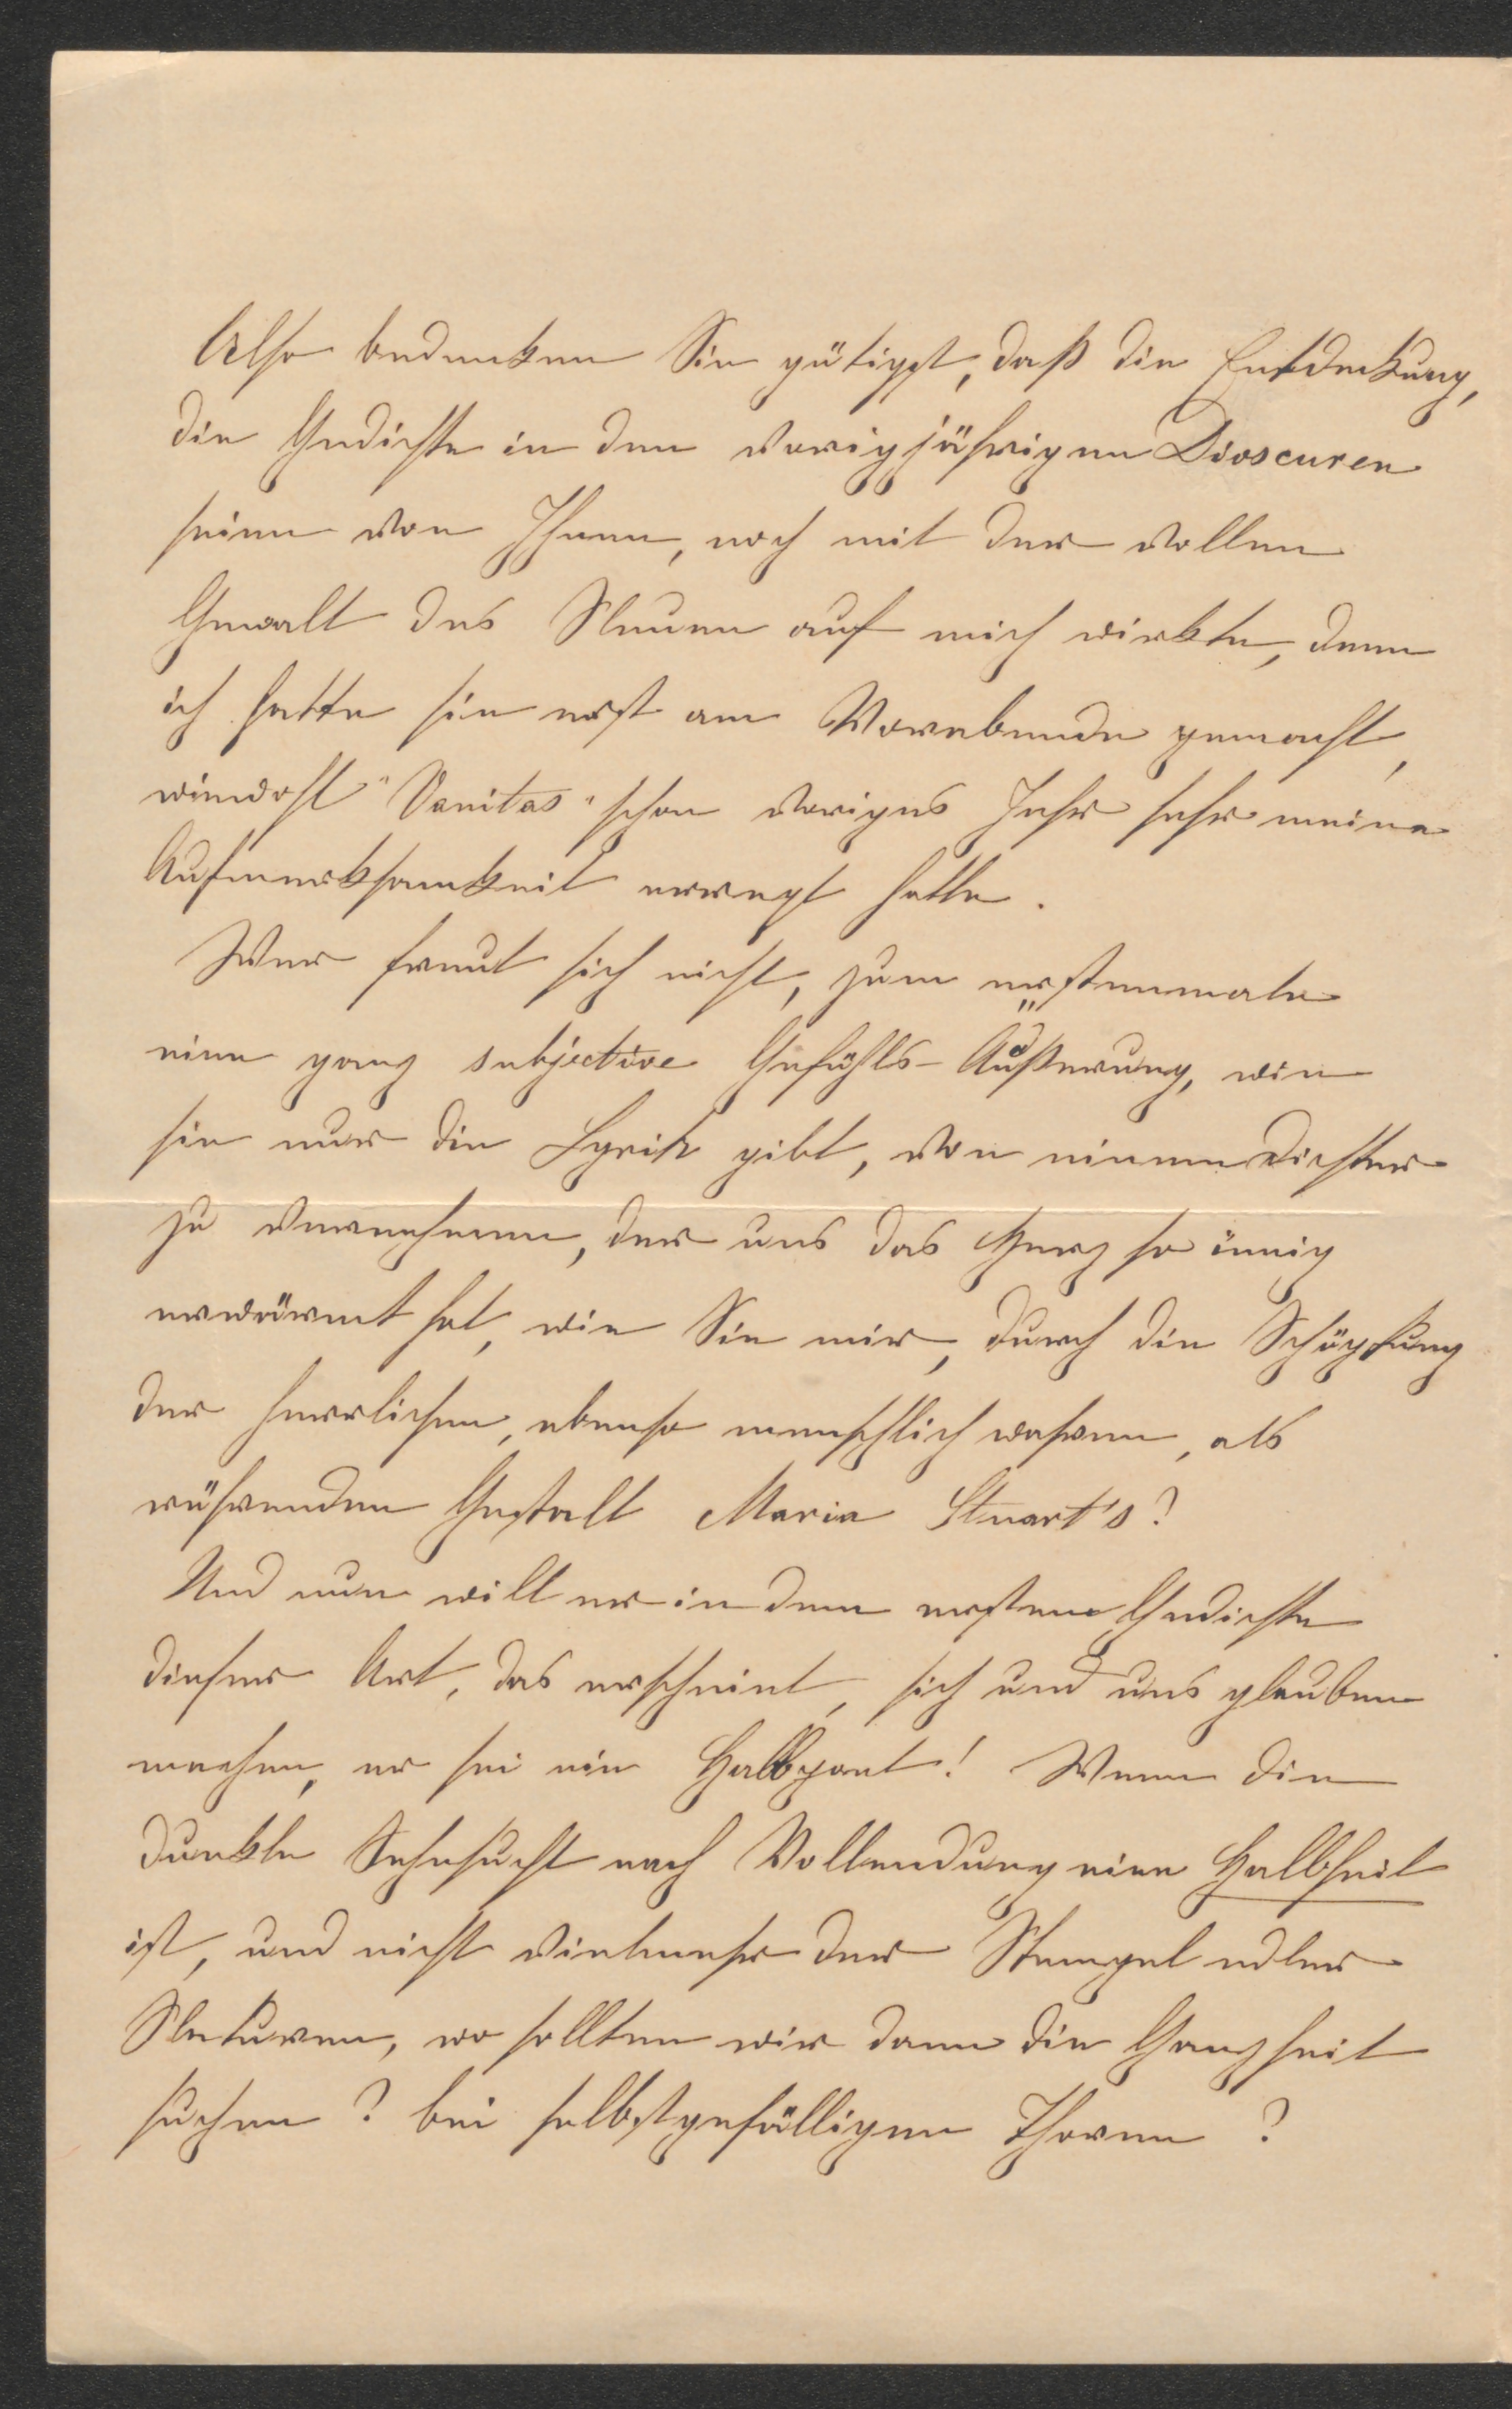 Also bedenken Sie gütigst, daß die Entdeckung,
die Gedichte in den vorigjährigen Dioscuren
seien von Ihnen, noch mit der vollen
Gewalt des Neuen auf mich wirkte, denn
ich hatte sie erst am Vorabende gemacht,
wiewohl "Vanitas" schon voriges Jahr sehr meine
Aufmerksamkeit erregt hatte.
Wer freut sich nicht, zum erstenmale
eine ganz subjective Gefühls-Äußerung, wie
sie nur die Lyrik gibt, von einem Dichter
zu vernehmen, der uns das Herz so innig
erwärmt hat, wie Sie mir, durch die Schöpfung
der herrlichen, ebenso menschlich wahren, als
rührenden Gestalt Maria Stuart's?
Und nun will er in dem ersten Gedichte
dieser Art, das erscheint, sich und uns glauben
machen, er sei ein Halbpoet! Wenn die
dunkle Sehnsucht nach Vollendung eine Halbheit
ist, und nicht vielmehr der Stempel edler
Naturen, wo sollten wir dann die Ganzheit
suchen? bei selbstgefälligen Thoren?